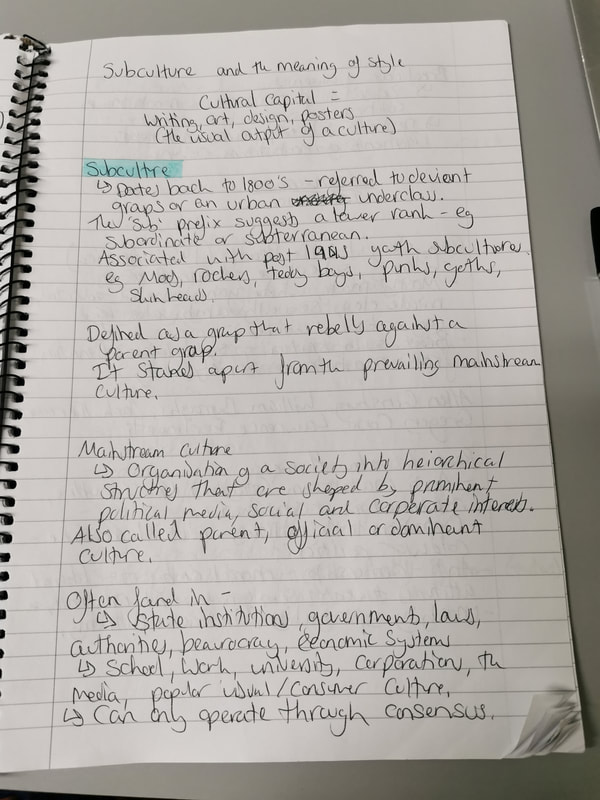 Subculture and the meaning of style
Cultural Capital =
Writing, art, design, posters
(the usual output of a culture)
Subculture
↳ Dates back to 1800's - referred to deviant
groups or an urban underclass.
The 'sub' prefix suggests a lower rank - eg
subordinate or subterranean.
Associated with post youth subcultures
eg Mods, rockers, teddy boys, punks, goths,
skin heads.
Defined as a group that rebells against a
parent group.
It stands apart from the prevailing mainstream
culture.
Mainstream culture
↳ Organisation of a society into heiarchical
structures that are shaped by prominent
political media, social and corperate interests.
Also called parent, official or dominant
culture.
Often found in -
↳ State institutions, governments, laws,
authorities, beaurocracy, economic systems
↳ School, work, university, corporations, the
media, popular visual/consumer culture.
↳ Can only operate through consensus.